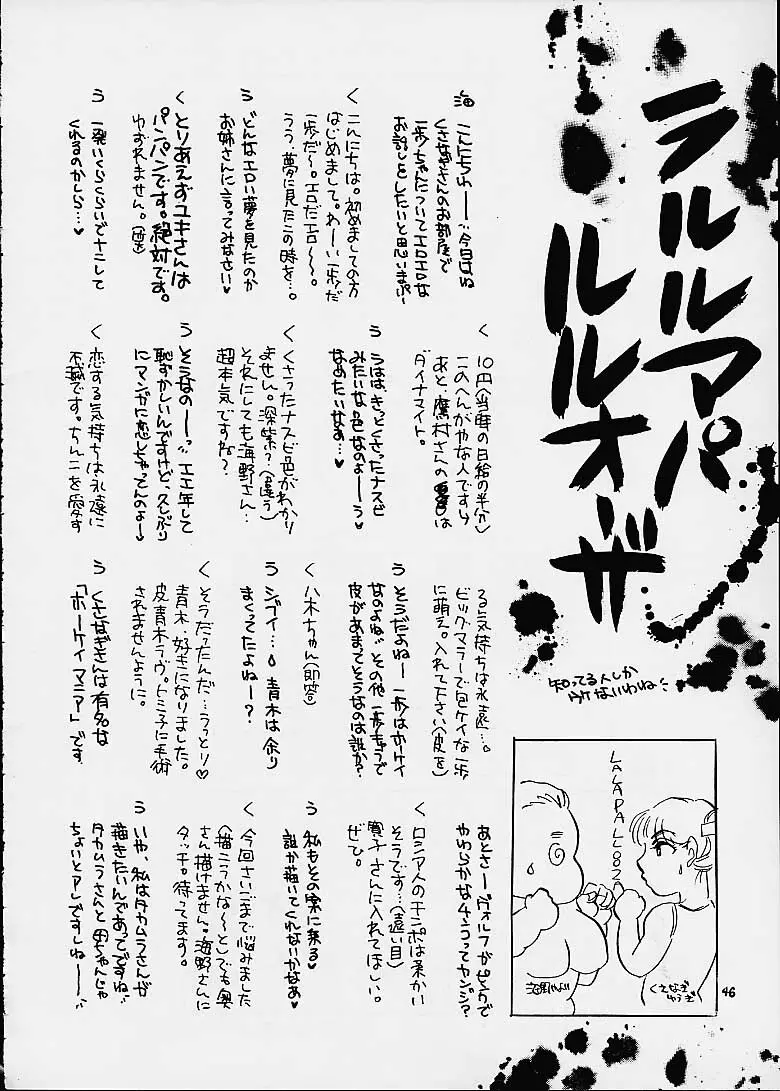 ラルルアパルルオーザ
知ってる人しか
ウケないわね
海 こんにちわー 今日はね
くさなぎさんのお部屋で
一歩ちゃんについてエロエロな
お話しをしたいと思いまぷー
く こんにちは。初めましての方
はじめまして。わーい一歩だ
一歩だ〜。エロだエロ〜〜。
うう、夢に見たこの時を…。
う どんなエロい夢を見たのか
お姉さんに言ってみなさい♥
く とりあえずユキさんは
パンパンです。絶対です。
ゆずれません。
う 一発いくらくらいでナニして
くれるのかしら…♥
く 10円(当時の日給の半分)
このへんがやな人ですら
あと、鷹村さんの
ダイナマイト。
う うはは、きっとくさったナスビ
みたいな色なのよーう
なめたいなぁ…♥
く くさったナスビ色がわかり
ません。深紫?(違う)
それにしても海野さん…
超本気ですね?
う そうなのーっ エエ年して
恥ずかしいんですけど、久しぶり
にマンガに恋しちゃってんのよー
く 恋する気持ちは永遠に
不滅です。ちんこを愛す
る気持ちは永遠…。
ビッグマラーで包ケイな一歩
に萌え。入れて下さい(皮を)
う そうだよねー 一歩はホーケイ
なのよね その他一歩キャラで
皮があまってそうなのは誰か?
く 八木ちゃん(即答)
う シブイ…。青木は余り
まくってたよねー?
く そうだったんだ…うっとり♡
青木、好きになりました。
皮青木ラヴ。トミ子に手術
されませんように。
う くさなぎさんは有名な
「ホーケイマニア」です
あとさーヴォルフがピンクで
やわらかなチンコってカンジ?
く ロシア人のチンポは柔かい
そうです…(遠い目)
寛子さんに入れてほしい。
ぜひ。
う 私もその案に乗る♥
誰か描いてくれないかなぁ♥
く 今回さいごまで悩みました
(描こうかな〜と)でも奥
さん描けません。海野さんに
タッチ。待ってます。
う いや、私はタカムラさんが
描きたいんであってですね
タカムラさんと母ちゃんじゃ
ちょいとアレですしねー
LALAPALOOZA
海野やよい
くさなぎ
ゆうぎ
46